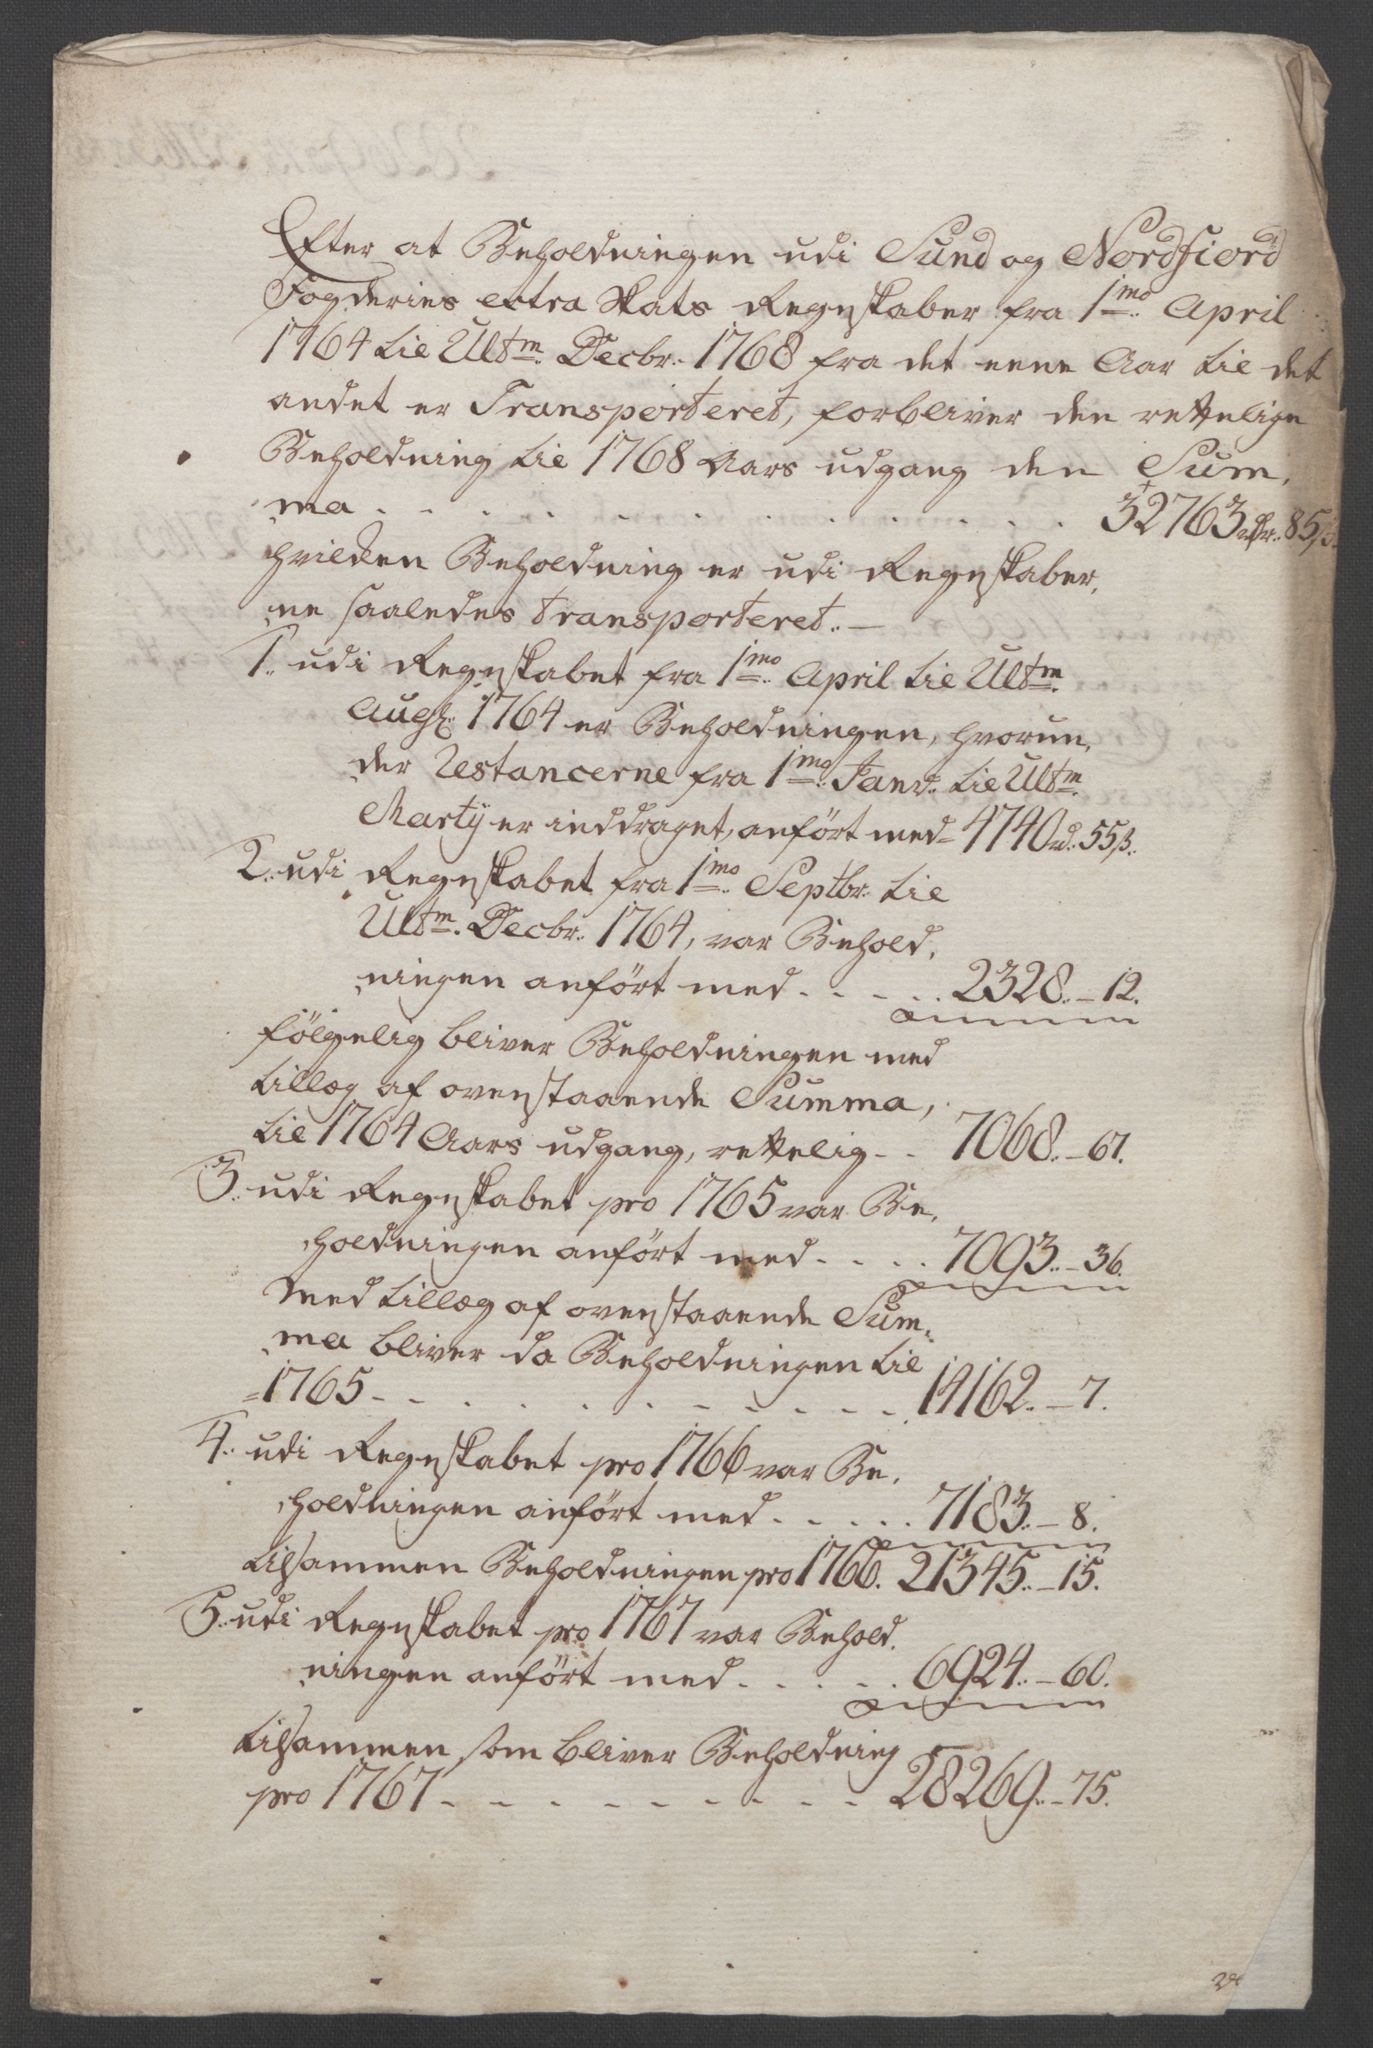 Efter at Beholdningen udi Sund og Nordfiord
Fogderies extra Skats Regnskaber fra 1mo. April
1764 til Ultm. Decbr. 1768 fra det eene Aar til det
andet er Transporteret, forbliver den rettelige
Beholdning til 1768 Aars udgang den Sum,
ma . . . . . . . . . . . . . 32763 rdr. 85 ß
hvilken Beholdning er udi Regnskaber,
ne saaledes transporteret. —
1. udi Regnskabet fra 1mo. April til Ultm.
Augs. 1764 er Beholdningen, hvorun,
der Restancerne fra 1mo. Janv. til Ultm.
Martij er inddraget, anført med - 4740 rd. 55 ß.
2. udi Regnskabet fra 1mo. Septbr. til
Ultm. Decbr. 1764, var Behold,
ningen anført med . . . . . 2328. - 12.
følgelig bliver Beholdningen med
tillæg af ovenstaaende Summa,
til 1764 Aars udgang, rettelig - . 7068. - 67.
3. udi Regnskabet pro 1765 var Be,
holdningen anført med . . . . 7093. - 36.
Med tillæg af ovenstaaende Sum,
ma bliver da Beholdningen til
1765 - . . . . . . . . . . 14162. - 7.
4. udi Regnskabet pro 1766 var Be,
holdningen anført med . . . . . 7183. - 8.
tilsammen Beholdningen pro 1766. 21345. - 15.
5. udi Regnskabet pro 1767 var Behold,
ningen anført med . . . . . 6924. - 60.
tilsammen som bliver Beholdning
pro 1767 - . . . . . . . . 28269. - 75.